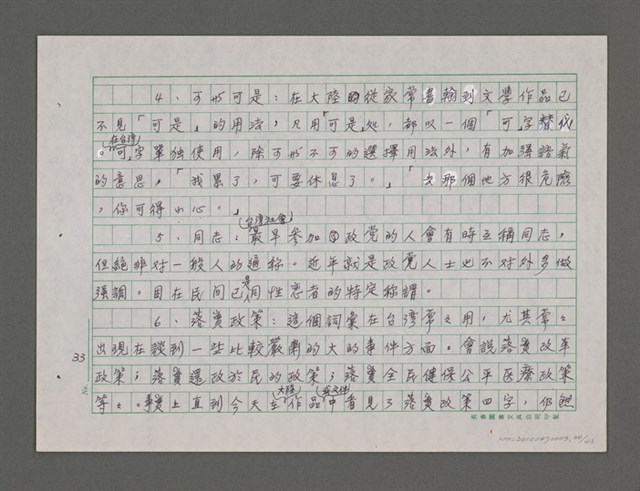 4、可and可是：在大陸從家常書翰到文學作品已
不見「可是」的用法，凡用「可是」処，都以一個「可」字替代
。(在台灣)可字單独使用，除可and不可的選擇用法外，有加强語氣
的意思，「我累了，可要休息了。」「那個地方很危險
，你可得小心。」
5、同志：(台灣社會)最早参加政党的人會有時互稱同志，
但絕非対一般人的通称。近年就是政党人士也不対外多做
强調。因在民间已是同性恋者的特定称謂。
6、落實政策：這個詞彙在台湾常之用，尤其常々
出現在談到一些比較嚴肅的大的事件方面。會説落實改革
政策；落實還政於民的政策；落實全民健保公平医療政策
等々。事實上直到今天在(大陸)作品(或文件)中看見了落實政策四字，仍然
33
No.